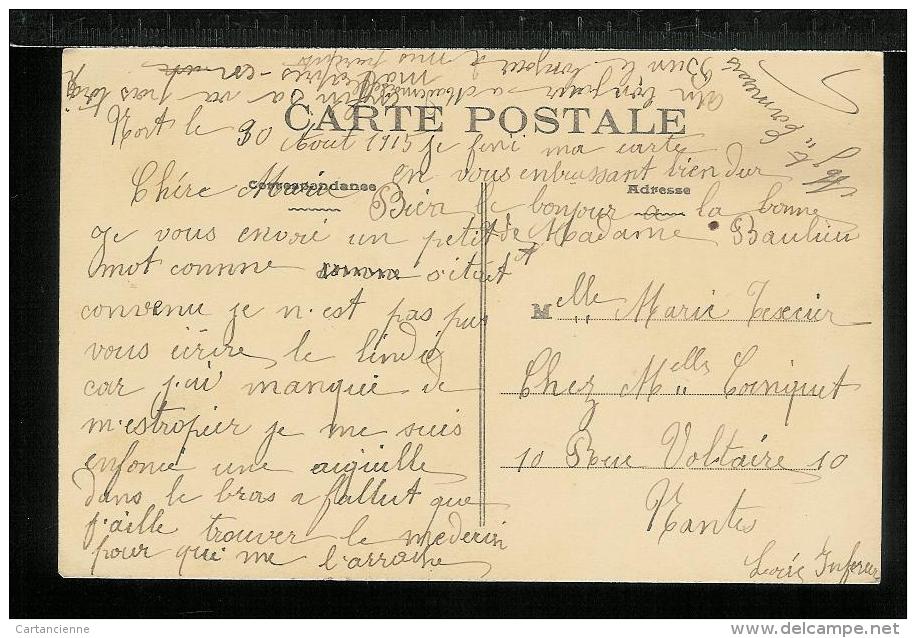 Nort le 30 Août 1915
CARTE POSTALE
Correspondance
Adresse
Chére Marie
je vous envoié un petit
mot comme s'etait
convenu je n'est pas pus
vous éirire le lindi
car j'ai manquié de
m'estropier je me suis
enfoncé une aiguille
dans le bras a fallut que
j'aille trouver le medecin
pour qui me l'arrache
je fini ma carte
en vous enbrassant bien dur
Bien le bonjour a la bonne
de Madame Baulieu
Melle Marie Texeier
Chez Melle Coinquet
10 Rue Voltaire 10
Nantes
Loire Infereu
Bien le bonjour de
mes parents
© Cartancienne
http://www.delcampe.net